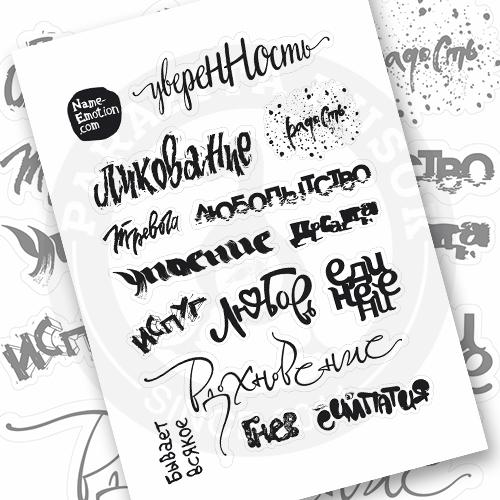 увереННость
Name-
Emotion
.com
радость
ликование
Тревога
ЛЮБОПЫТСТВО
упоение
Досада
испуг
Любовь
еди
нене
ние
Вдохновение
Бывает
всякое
Гнев
симпатия